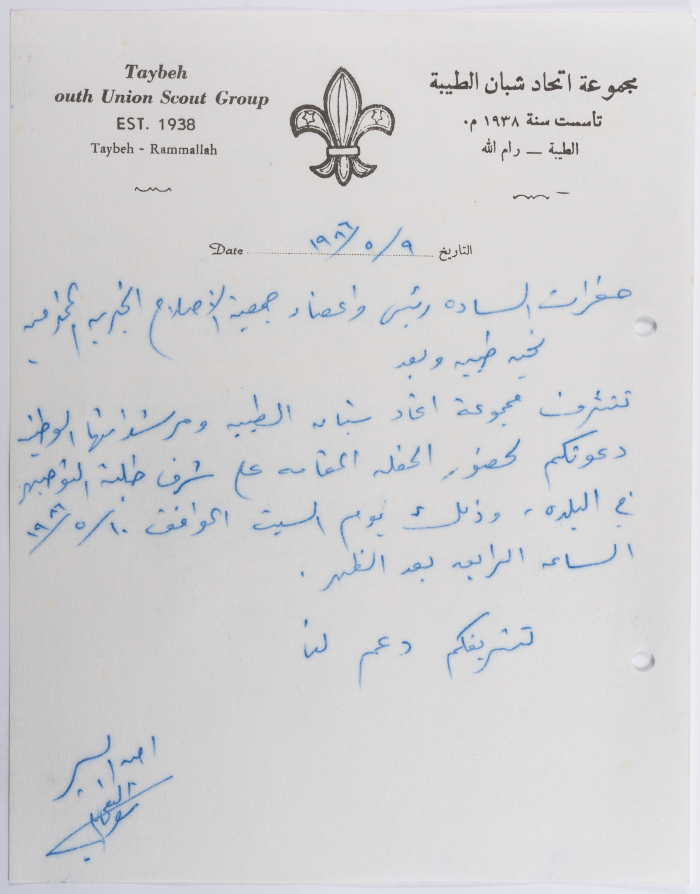 Taybeh
outh Union Scout Group
EST. 1938
Taybeh - Rammallah
مجموعة اتحاد شبان الطيبة
تأسست سنة ١٩٣٨ م.
الطيبة – رام الله
Date ١٩٨٦/٥/٩ التاريخ
حضرات الساده رئيس واعضاء جمعية الاصلاح الخيريه المحترمين
تحيه طيبه وبعد
تتشرف مجموعة اتحاد شبان الطيبه ومرشداتها
دعوتكم لحضور الحفله المقامه على شرف طلبة التوجيهي
في البلده، وذلك يوم السبت الموافق ١٩٨٦/٥/١٠
الساعه الرابعه بعد الظهر.
تشريفكم دعم لنا
امين السر